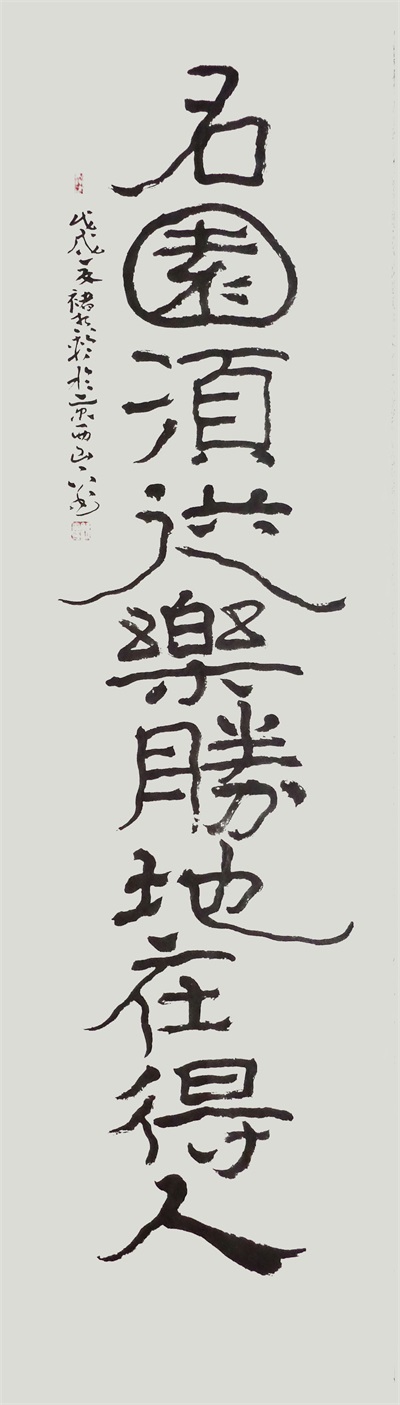 名園須從樂勝地在得人
戊戌夏褚於京西山